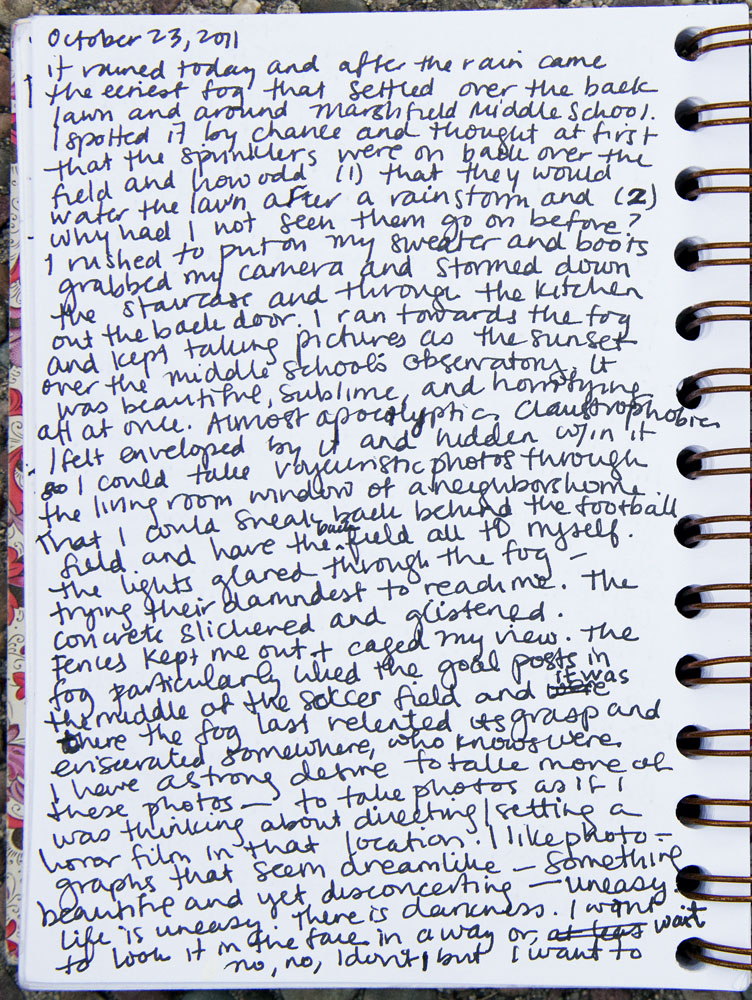 October 23, 2011
it rained today and after the rain came
the eeriest fog that settled over the back
lawn and around Marshfield Middle School.
I spotted it by chance and thought at first
that the sprinklers were on back over the
field and how odd (1) that they would
water the lawn after a rainstorm and (2)
why had I not seen them go on before?
I rushed to put on my sweater and boots
grabbed my camera and stormed down
the staircase and through the kitchen
out the back door. I ran towards the fog
and kept taking pictures as the sunset
over the middle school's observatory. It
was beautiful, sublime, and horrifying
all at once. Almost apocalyptic. Claustrophobic.
I felt enveloped by it and hidden w/in it
so I could take voyeuristic photos through
the living room window of a neighbors home.
That I could sneak back behind the football
field and have the back field all to myself.
the lights glared through the fog –
trying their damndest to reach me. The
concrete slickered and glistened.
Fences kept me out + caged my view. The
fog particularly liked the goal posts in
the middle of the soccer field and it was
there the fog last relented its grasp and
eviscerated somewhere, who knows were.
I have a strong desire to take more of
these photos — to take photos as if I
was thinking about directing/setting a
horror film in that location. I like photo-
graphs that seem dreamlike – something
beautiful and yet disconcerting — uneasy.
Life is uneasy. There is darkness. I want
to look it in the face in a way or, at least wait
no, no, I don't, but I want to